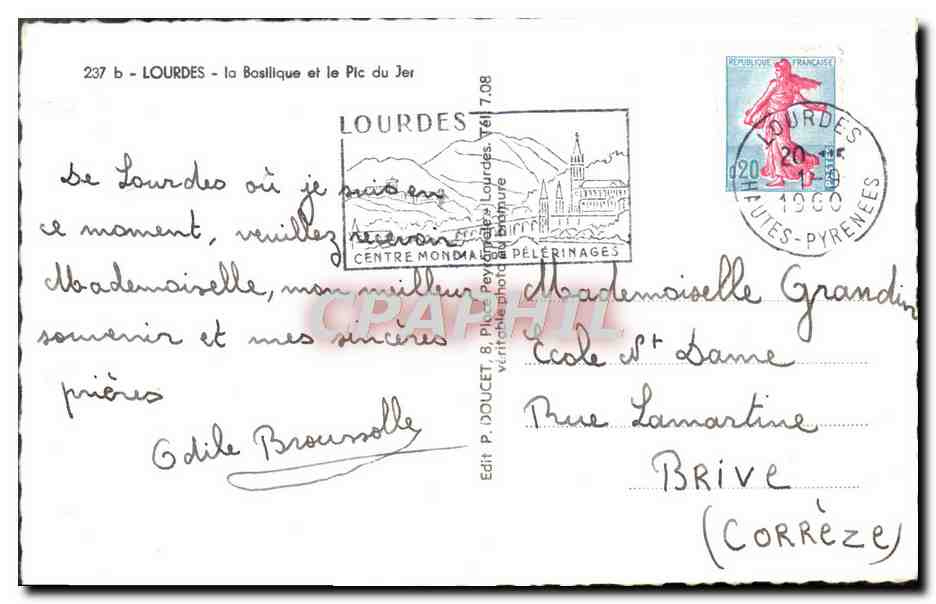 237 b - LOURDES - la Basilique et le Pic du Jer
LOURDES
CENTRE MONDIAL DE PÈLERINAGES
De Lourdes où je suis en
ce moment, veuillez recevoir
Mademoiselle, mon meilleur
souvenir et mes sincères
prières
Odile Broussolle
Edit P. DOUCET, 8, Place Peyramale - Lourdes. Tél. 7.08
véritable photo au bromure
RÉPUBLIQUE FRANÇAISE
0,20
POSTES
LOURDES
20
1960
HAUTES-PYRENEES
Mademoiselle Grandin
École Nt Dame
Rue Lamartine
BRIVE
(CORRÈZE)
CPAPHIL